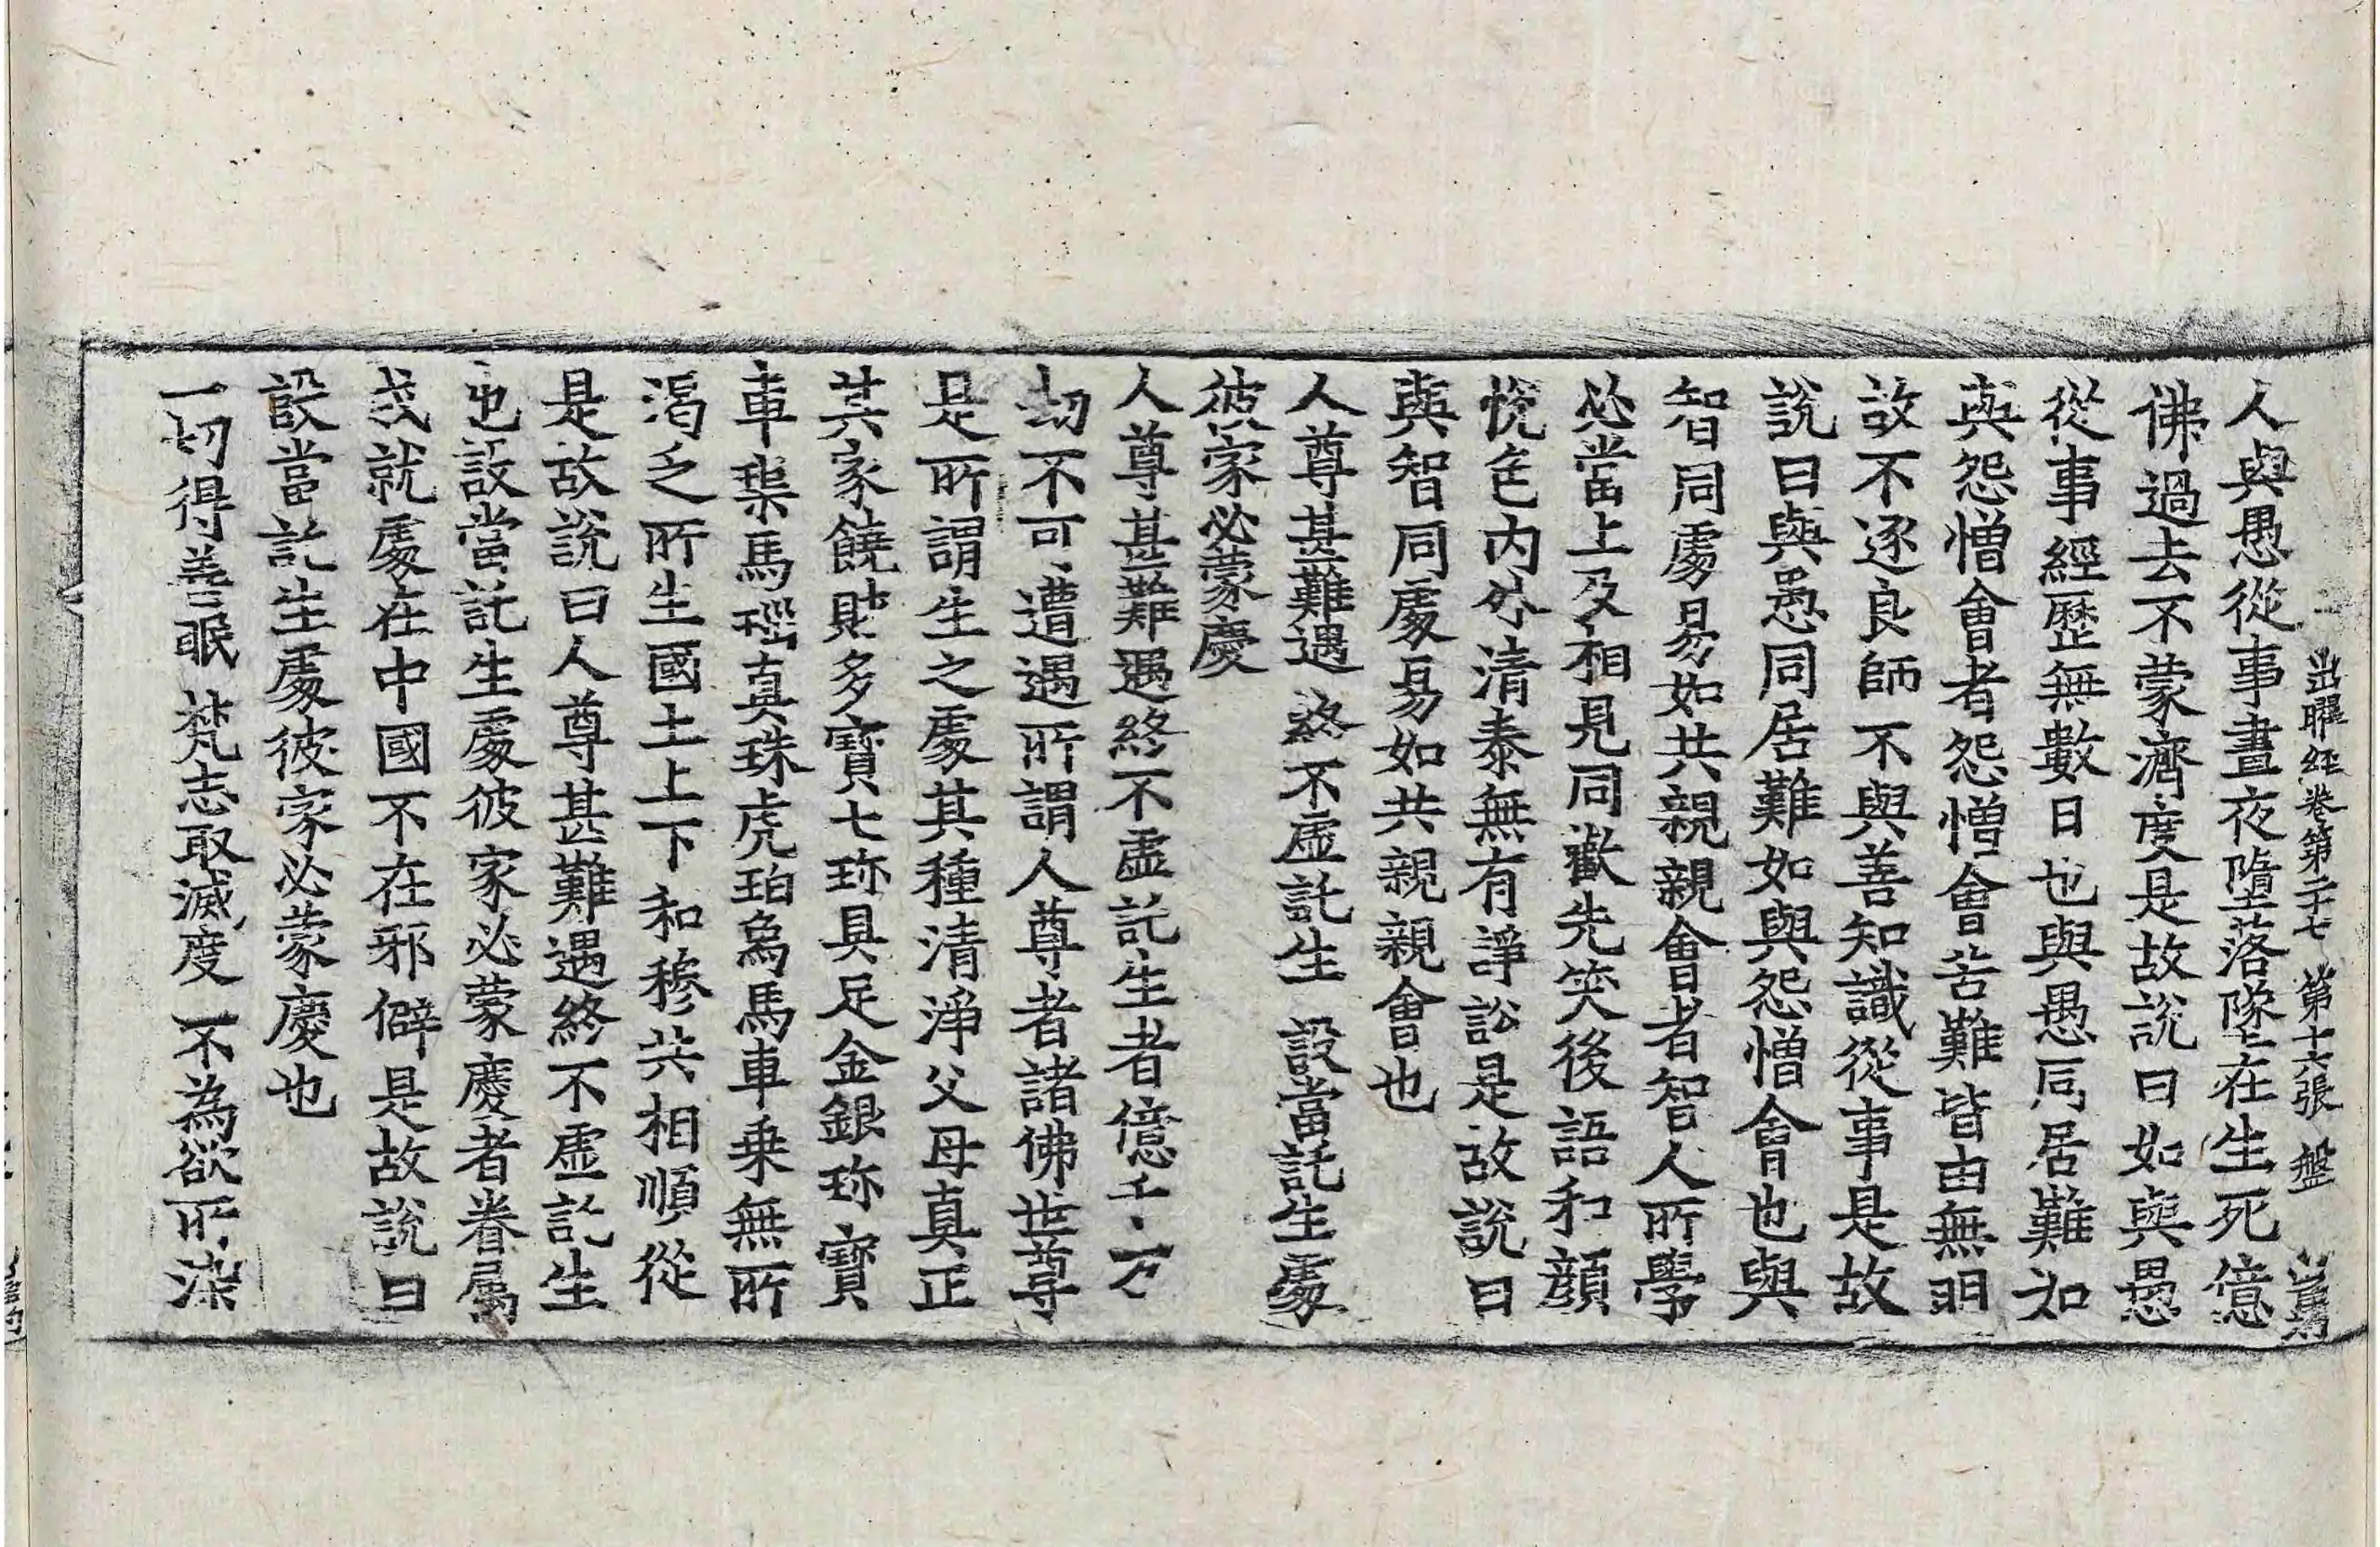 出曜經卷第二十七 第十六張 盤
人與愚從事晝夜墮落墜在生死億
佛過去不蒙濟度是故說曰如與愚
從事經歷無數日也與愚同居難如
與怨憎會者怨憎會苦難皆由無明
故不逐良師不與善知識從事是故
說曰與愚同居難如與怨憎會也與
智同處易如共親親會者智人所學
必當上及相見同歡先笑後語和顏
恱色內外清泰無有諍訟是故說曰
與智同處易如共親親會也
人尊甚難遇 終不虛託生 設當託生處
彼家必蒙慶
人尊甚難遇終不虛託生者億千万
劫不可遭遇所謂人尊者諸佛世尊
是所謂生之處其種清淨父母真正
其家饒財多寶七珎具足金銀珎寶
車𤦲馬瑙真珠虎珀象馬車乗無所
渴乏所生國土上下和穆共相順從
是故說曰人尊甚難遇終不虛託生
也設當託生處彼家必蒙慶者眷屬
成就處在中國不在邪僻是故說曰
設當託生處彼家必蒙慶也
一切得善眠 梵志取滅度 不為欲所染